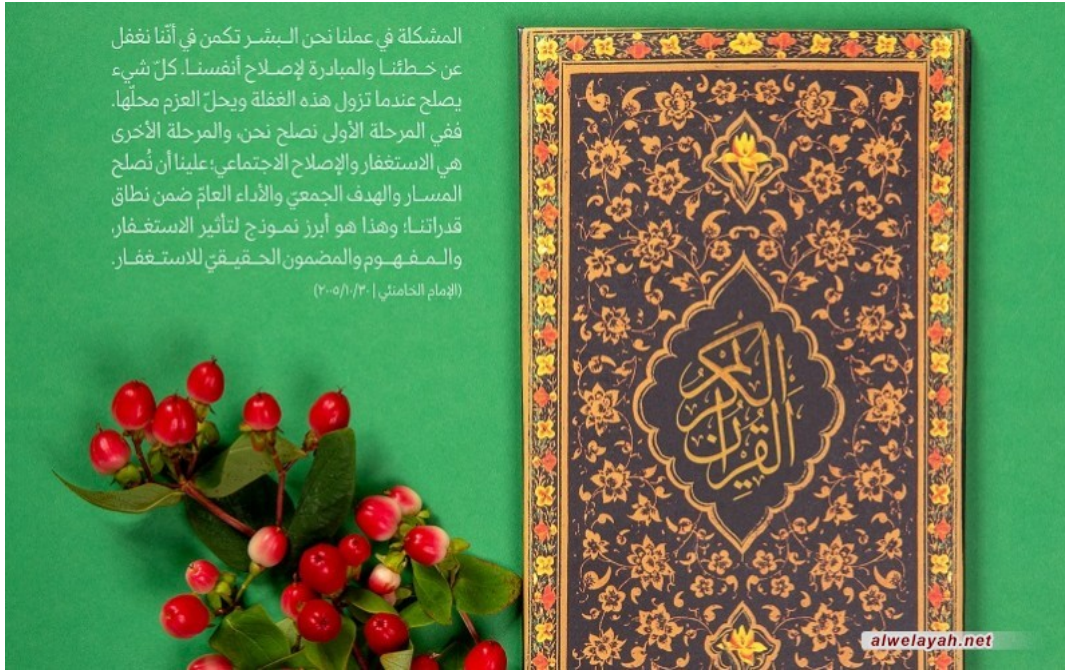 المشكلة في عملنا نحن البشر تكمن في أنّنا نغفل
عن خطئنا والمبادرة لإصلاح أنفسنا. كلّ شيء
يصلح عندما تزول هذه الغفلة ويحلّ العزم محلّها.
ففي المرحلة الأولى نصلح نحن، والمرحلة الأخرى
هي الاستغفار والإصلاح الاجتماعي؛ علينا أن نُصلح
المسار والهدف الجمعيّ والأداء العامّ ضمن نطاق
قدراتنا؛ وهذا هو أبرز نموذج لتأثير الاستغفار،
والمفهوم والمضمون الحقيقيّ للاستغفار.
(الإمام الخامنئي | ٢٠٠٥/١٠/٣٠)
القرآن الكريم
alwelayah.net